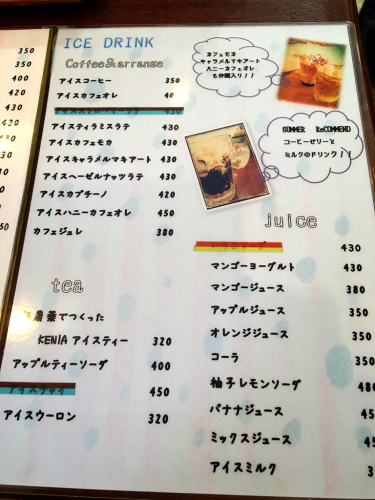 350
350
400
420
430
430
430
430
ICE DRINK
Coffee&arrange
アイスコーヒー 350
アイスカフェオレ 40
430
アイスティラミスラテ 430
アイスカフェモカ 430
アイスキャラメルマキアート 430
アイスヘーゼルナッツラテ 430
アイスカプチーノ 420
アイスハニーカフェオレ 450
カフェジュレ 380
カフェモカ
キャラメルマキアート
ハニーカフェオレ
も仲間入り!!
SUMMER ReCOMMEND
コーヒーゼリーと
ミルクのドリンク!!
tea
農薬でつくった
KENIA アイスティー 320
アップルティーソーダ 400
450
アイスウーロン 320
juice
430
マンゴーヨーグルト 430
マンゴージュース 380
アップルジュース 350
オレンジジュース 350
コーラ 350
柚子レモンソーダ 480
バナナジュース 45
ミックスジュース 45
アイスミルク 3